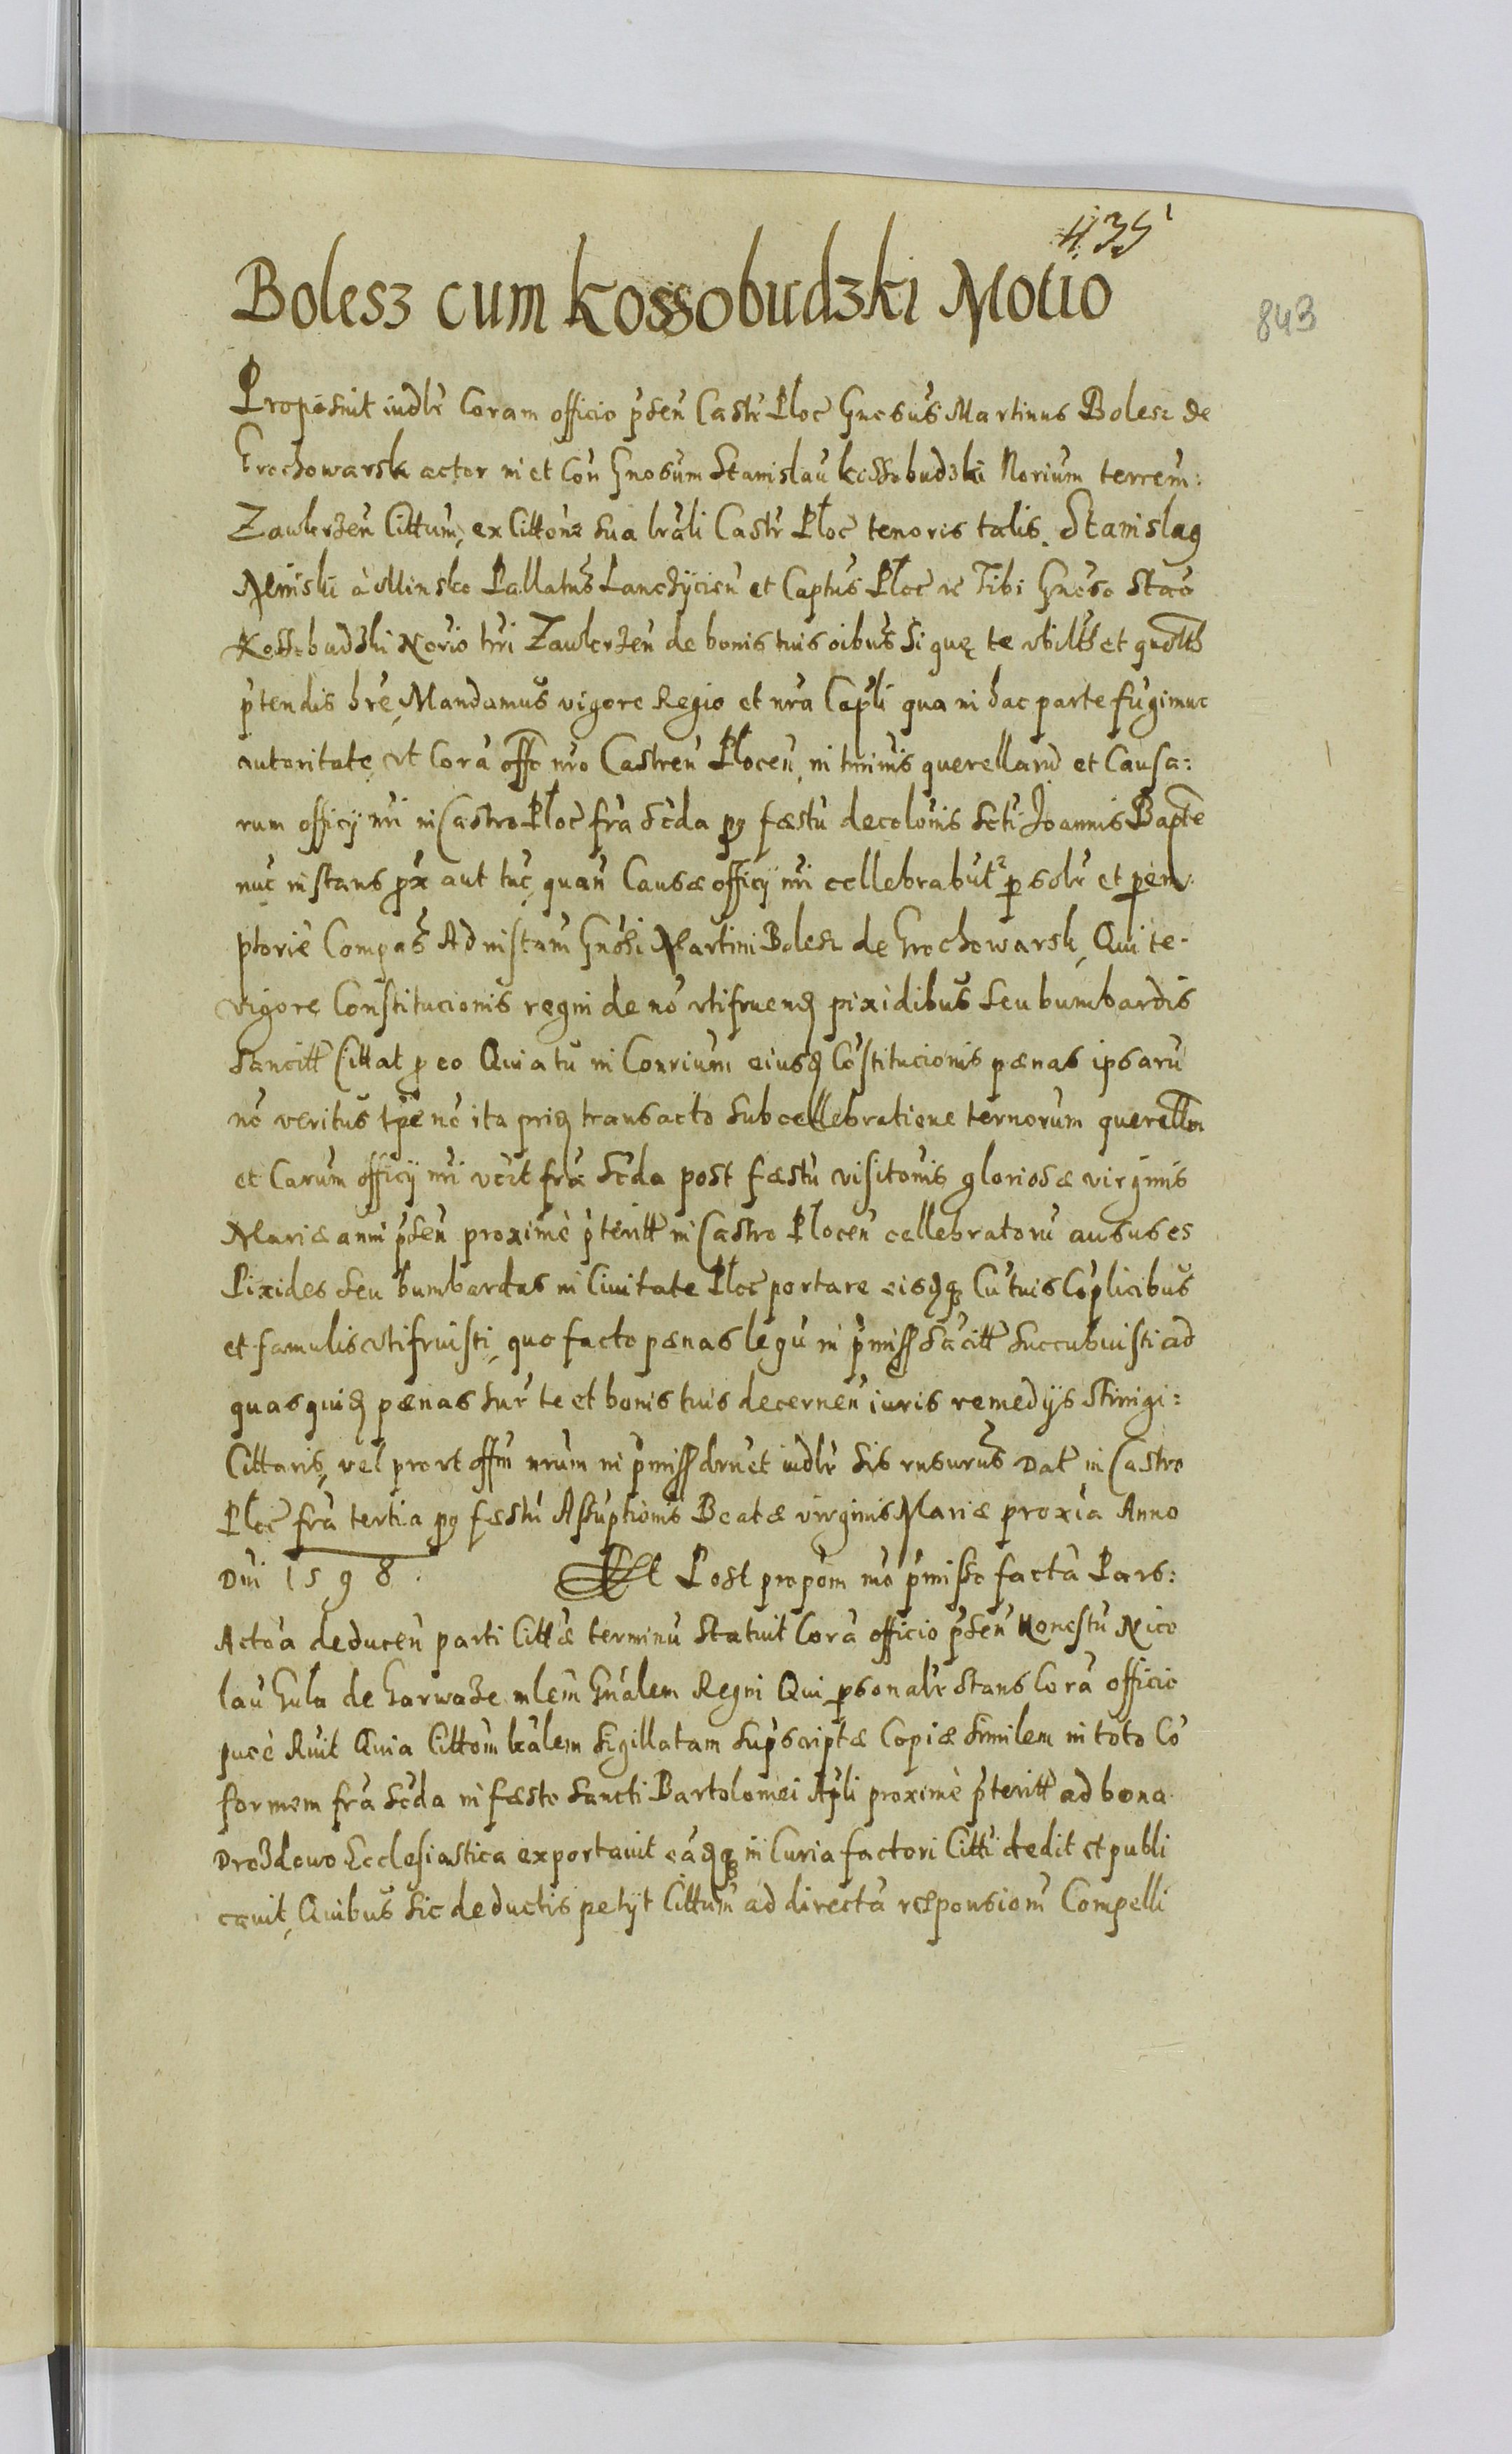 435
Bolesz cum Kossobudzki Motio
843
Proposuit iudlr Coram officio pśen Castr Ploc Gnosus Martinus Bolesz de
Grochowarsk actor in et Con Gnosum Stanislau Kossobudzki Norium terrem:
Zawkrzen Cittum, ex Cittone sua lrali Castr Ploc tenoris talis. Stanislaus
Minski à Minsko Pallatus Lanchycien et Captus Ploc Tibi Gnoso Stao
Kossobudzki Norio trri Zawkrzen de bonis tuis oibus si quę te vbilts et quolts
ptendis hre, Mandamus vigore Regio et nra Capli qua in hac parte fugimur
autoritate, vt Cora offo nro Castren Plocen, in tminis querellaru et Causa:
rum officij nri in Castro Ploc fra Scda pq fæstu decolonis Scti Joannis Bapte
nuc instans prox aut tuc, quan Causæ officij nri cellebrabutr psolr et pem
ptorie Compas Ad instam Gnosi Martini Bolesz de Grochowarsk, Qui te
vigore Constitucionis regni de no vtifruend pixidibus seu bumbardis
Sancitt Cittat pro eo Quia tu in Conrium eiusd Costitucionis pænas ipsaru
no veritus tpe no ita prid transacto sub cellebratione ternorum querellm
et Carum officij nri vczt fra Scda post fæstu visitonis gloriosæ virginis
Mariæ anni pśen proximè pteritt in Castro Plocen cellebratoru ausus es
Pixides seu bumbardas in Ciuitate Ploc portare eisdq Cu tuis Coplicibus
et famulis vtifruisti, quo facto pænas legu in pmiss sacitt succubuisti ad
quas quid pænas sur te et bonis tuis decernen iuris remedijs stringi:
Cittaris, vel prort offm nrum in pmiss drnet iudlr sis rnsurus Dat in Castro
Ploc fra tertia pq fæstu Assuptionis Beatæ virginis Mariæ proxia Anno
Dni 1598. Et Post propom mo pmisso facta Pars:
Actoa deducen parti Cittæ terminu Statuit Cora officio pśen Honestu Nico
lau Gula de Harwaze mlem Gnalem Regni Qui psonalr stans Cora officio
puce Ruit Quia Cittom lralem sigillatam supscriptæ Copiæ similem in toto Co
formem fra Scda in fæsto Sancti Bartolomei Apli proximè pteritt ad bona
Drozdowo Ecclesiastica exportauit eadq in Curia factori Citti dedit et publi
cauit, Quibus sic deductis petijt Cittum ad directa responsiom Compelli